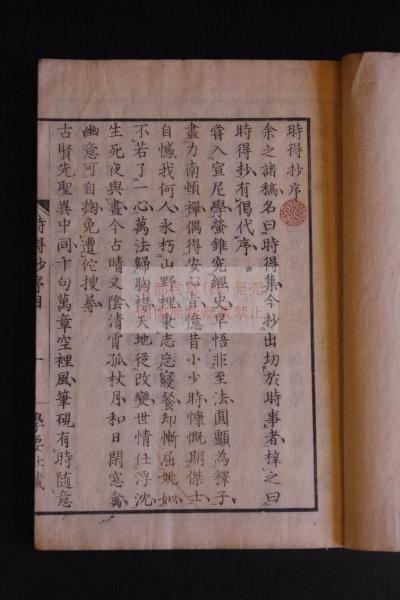 時得抄序
余之諸稿名曰時得集今抄出切於時事者梓之曰
時得抄有偈代序
嘗入宣尼學螢錐究經史早悟非至法圓顱為釋子
盡力南頓禪偶得安心旨憶昔小少時慷慨期傑士
自憾我何人永朽山野裡秉志忘寢餐却慚屈姚姒
不若了一心萬法歸胸襟天地從改變世情任浮沈
生死夜與晝今古晴又陰清霄孤杖月和日閑窓禽
幽意可自掬免遭佗搜尋
古賢先聖異中同十句萬章空裡風筆硯有時隨意
時得抄序目 一